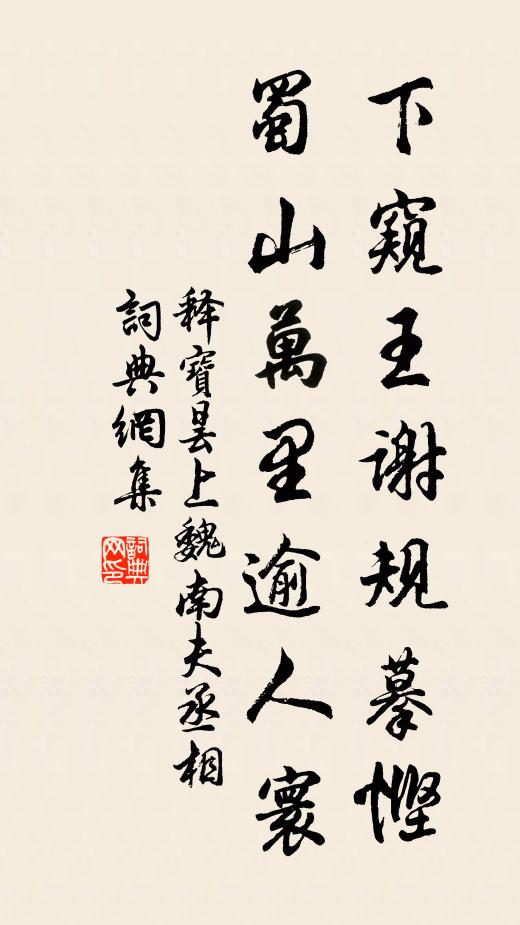 下窺王谢規摹慳
蜀山萬里逾人寰
释寶昙上魏南夫丞相
詞典網集
詞典網印